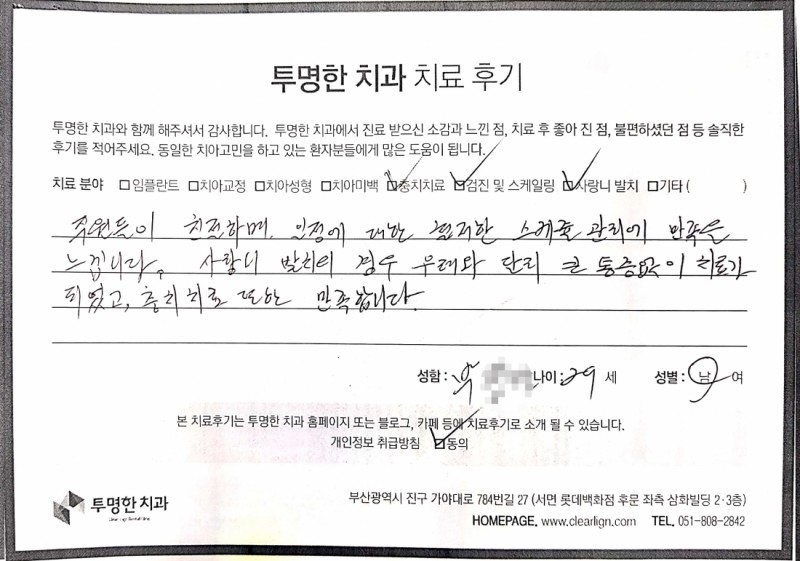 투명한 치과 치료 후기
투명한 치과와 함께 해주셔서 감사합니다. 투명한 치과에서 진료 받으신 소감과 느낀 점, 치료 후 좋아 진 점, 불편하셨던 점 등 솔직한
후기를 적어주세요. 동일한 치아고민을 하고 있는 환자분들에게 많은 도움이 됩니다.
치료 분야 □임플란트 □치아교정 □치아성형 □치아미백 ☑충치치료 ☑검진 및 스케일링 ☑사랑니 발치 □기타 ( )
직원들이 친절하며, 일정에 대한 편리한 스케쥴 관리에 만족을
느낍니다. 사랑니 발치의 경우 우려와 달리 큰 통증없이 치료가
되었고, 충치치료 또한 만족합니다.
성함 : 나이 : 29 세 성별 : 남 여
본 치료후기는 투명한 치과 홈페이지 또는 블로그, 카페 등에 치료후기로 소개 될 수 있습니다.
개인정보 취급방침 ☑동의
투명한 치과
부산광역시 진구 가야대로 784번길 27 (서면 롯데백화점 후문 좌측 삼화빌딩 2·3층)
HOMEPAGE. www.clearlign.com TEL. 051-808-2842